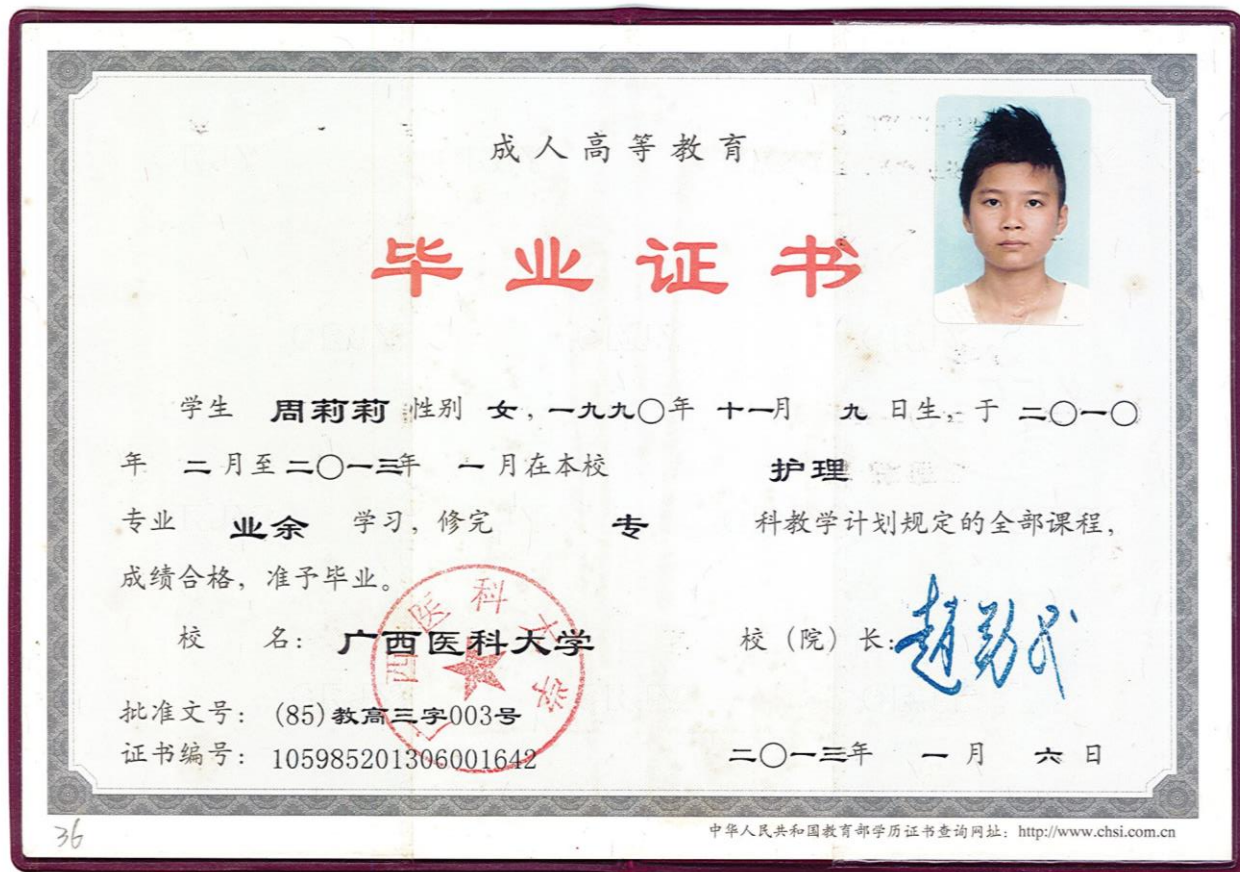 成人高等教育
毕业证书
学生 周莉莉 性别 女，一九九〇年 十一月 九 日生，于 二〇一〇
年 二 月至 二〇一三年 一 月在本校 护理
专业 业余 学习，修完 专 科教学计划规定的全部课程，
成绩合格，准予毕业。
广西医科大学
校 名： 广西医科大学 校（院）长：
批准文号： (85)教高三字003号
证书编号： 105985201306001642 二〇一三年 一 月 六 日
36
中华人民共和国教育部学历证书查询网址：http://www.chsi.com.cn